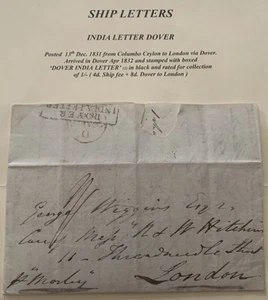 SHIP LETTERS
INDIA LETTER DOVER
Posted 13th Dec. 1831 from Columbo Ceylon to London via Dover.
Arrived in Dover Apr 1832 and stamped with boxed
'DOVER INDIA LETTER' in black and rated for collection
of 1/- ( 4d. Ship fee + 8d. Dover to London )
DOVER
INDIA LETTER
George Wiggins Esqr.
Care Messrs
11 Threadneedle Street
London
p "Morley"